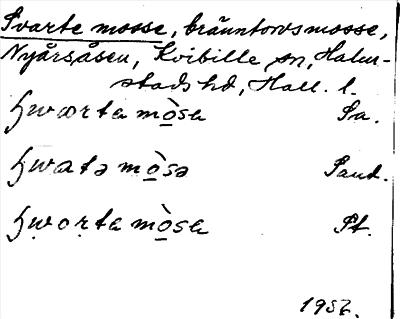 Svarte mosse, bränntorvsmosse,
Nyårsåsen, Kvibille sn, Halm-
stads hd, Hall. l.
hwarta mò̲sa Sa.
hwatə mò̲sə Sand.
hwo̤rta mò̲sa St.